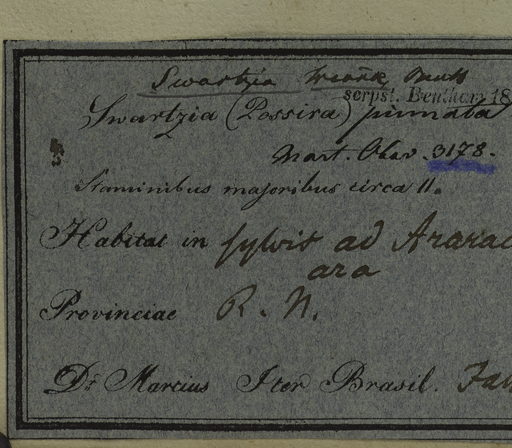 Swartzia Benth
scrpst. Bentham 18
Swartzia (Possira) pinnata
Mart. Obsv. 3178.
Staminibus majoribus circa 11.
Habitat in sylvis ad Ararac
ara
Provinciae R. N.
Dr. Martius Iter Brasil.